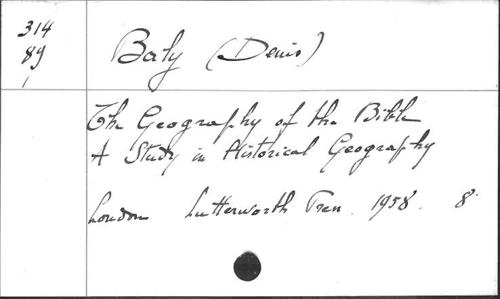 314
89
1
Baly (Denis)
The Geography of the Bible
A Study in Historical Geography
London Lutterworth Press. 1958. 8°